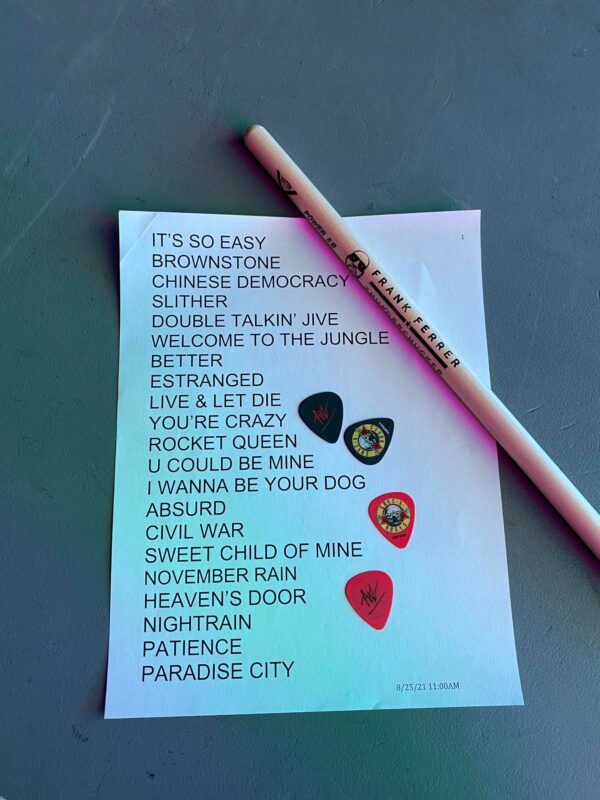 1
IT'S SO EASY
BROWNSTONE
CHINESE DEMOCRACY
SLITHER
DOUBLE TALKIN' JIVE
WELCOME TO THE JUNGLE
BETTER
ESTRANGED
LIVE & LET DIE
YOU'RE CRAZY
ROCKET QUEEN
U COULD BE MINE
I WANNA BE YOUR DOG
ABSURD
CIVIL WAR
SWEET CHILD OF MINE
NOVEMBER RAIN
HEAVEN'S DOOR
NIGHTRAIN
PATIENCE
PARADISE CITY
8/25/21 11:00AM
POWER 5B
FRANK FERRER